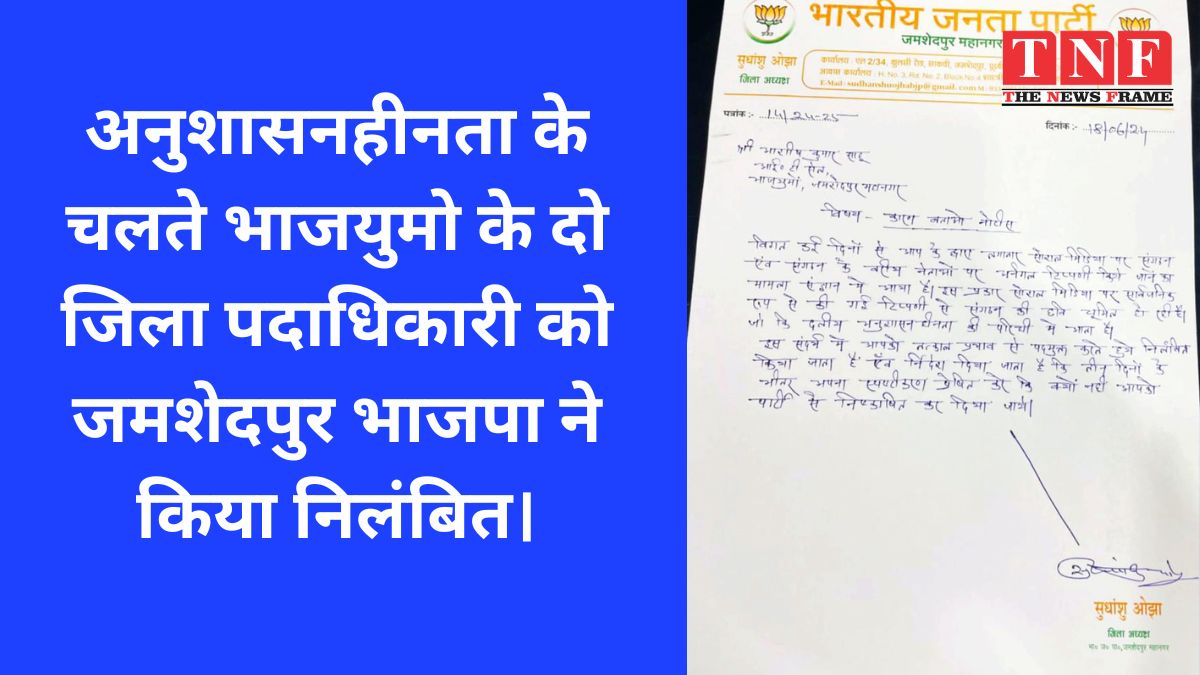 अनुशासनहीनता के
चलते भाजयुमो के दो
जिला पदाधिकारी को
जमशेदपुर भाजपा ने
किया निलंबित।
भारतीय जनता पार्टी
जमशेदपुर महानगर
TNF
THE NEWS FRAME
सुधांशु ओझा
जिला अध्यक्ष
कार्यालय : एल 2/34,
आवास कार्यालय : H. No. 3,
E-Mail: sudhanshuojhabjp@gmail.com
पत्रांक :- 14/24-25
दिनांक :- 18/06/24
श्री आशीष कुमार साहू
आई० टी सेल,
भाजयुमो, जमशेदपुर महानगर
विषय - कारण बताओ नोटिस
विगत कई दिनों से आप के द्वारा लगातार सोशल मिडिया पर संगठन
एवं संगठन के वरीय नेताओं पर अनर्गल टिप्पणी किये जाने का
मामला संज्ञान में आया है। इस प्रकार सोशल मिडिया पर सार्वजनिक
रूप से की गई टिप्पणी से संगठन की छवि धूमिल हो रही है।
जो कि दलीय अनुशासन हीनता की श्रेणी में आता है।
इस संदर्भ में आपको तत्काल प्रभाव से पदमुक्त करते हुये निलंबित
किया जाता है एवं निर्देश दिया जाता है कि तीन दिनों के
भीतर अपना स्पष्टीकरण प्रेषित करे कि क्यों नहीं आपको
पार्टी से निष्कासित कर दिया जाये।
सुधांशु ओझा
जिला अध्यक्ष
भा० ज० पा०, जमशेदपुर महानगर